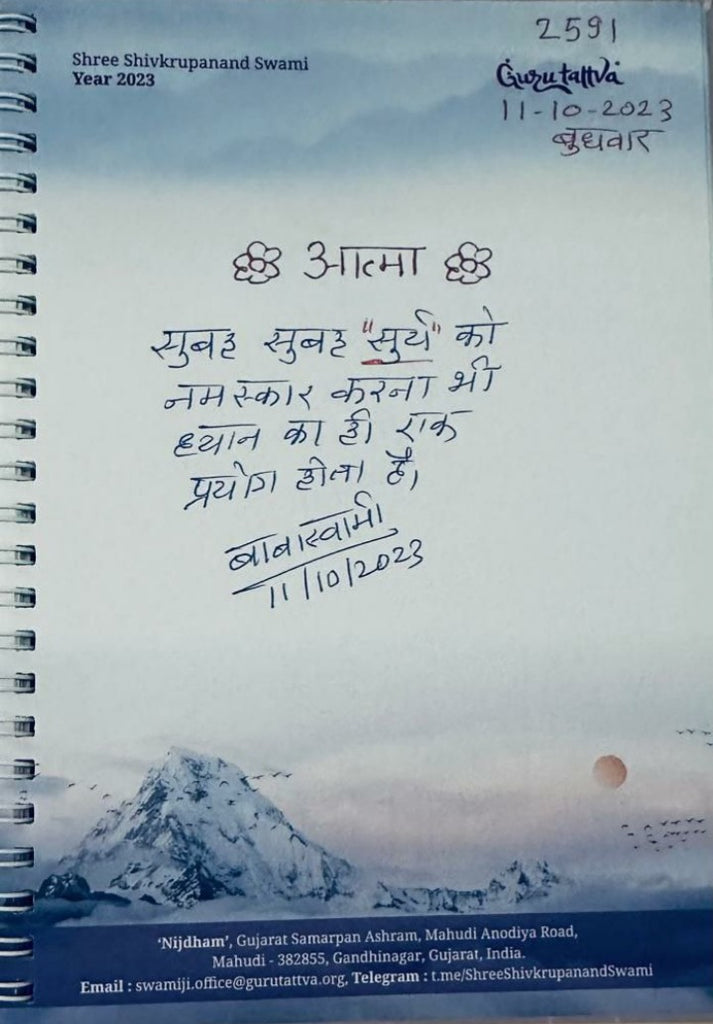 2591
Shree Shivkrupanand Swami
Year 2023
Gurutattva
11-10-2023
बुधवार
आत्मा
सुबह सुबह "सुर्य" को
नमस्कार करना भी
ध्यान का ही एक
प्रयोग होता है,
बाबास्वामी
11/10/2023
'Nijdham', Gujarat Samarpan Ashram, Mahudi Anodiya Road,
Mahudi - 382855, Gandhinagar, Gujarat, India.
Email : swamiji.office@gurutattva.org, Telegram : t.me/ShreeShivkrupanandSwami